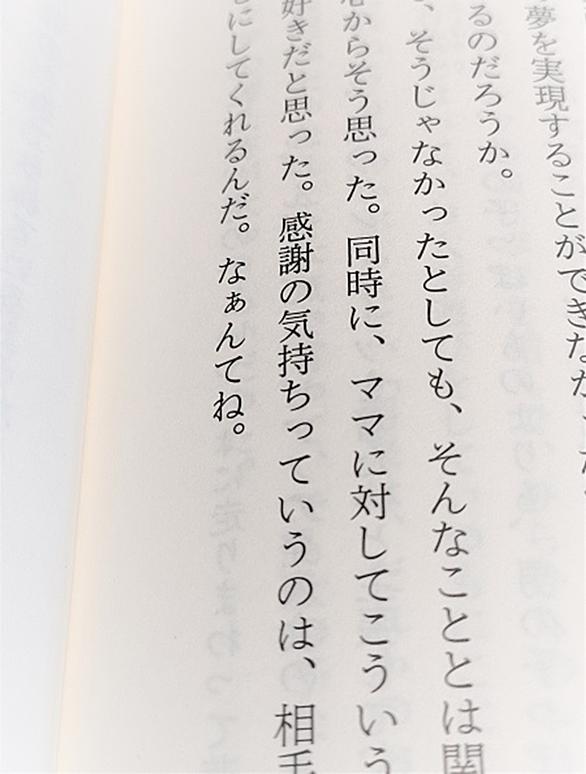 夢を実現することができなか
るのだろうか。
、そうじゃなかったとしても、そんなこととは関
からそう思った。同時に、ママに対してこういう
好きだと思った。感謝の気持ちっていうのは、相手
にしてくれるんだ。なぁんてね。